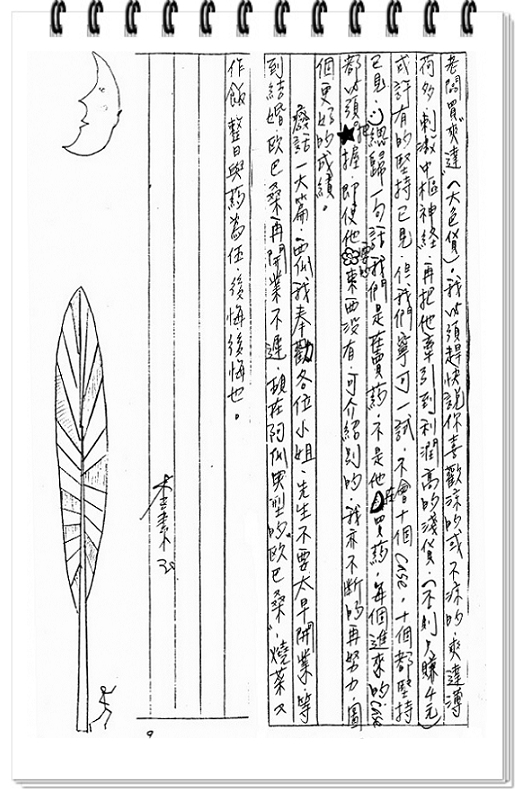 老闆買"爽達"(大色貨)。我必須趕快說你喜歡涼的或不涼的。爽達薄
荷多。刺激中樞神經。再把他牽引到利潤高的淺貨。(不刺戶賺4元)
或許有的堅持己見。但我們寧可一試。不會十個Case。十個都堅持
己見。總歸一句話。我們是舊買葯。不是他來買葯。每個進來的Case
都必須把握。即使他要的東西沒有。可介紹別的。我亦不斷的再努力。圖
個更好的成績。
廢話一大篇。西瓜我奉勸各位小姐、先生不要太早開業。等
到結婚。歐巴桑再開業不遲。現在阿瓜典型的"歐巴桑"。燒菜又
作飯。整日與葯為伍。後悔後悔也。
9